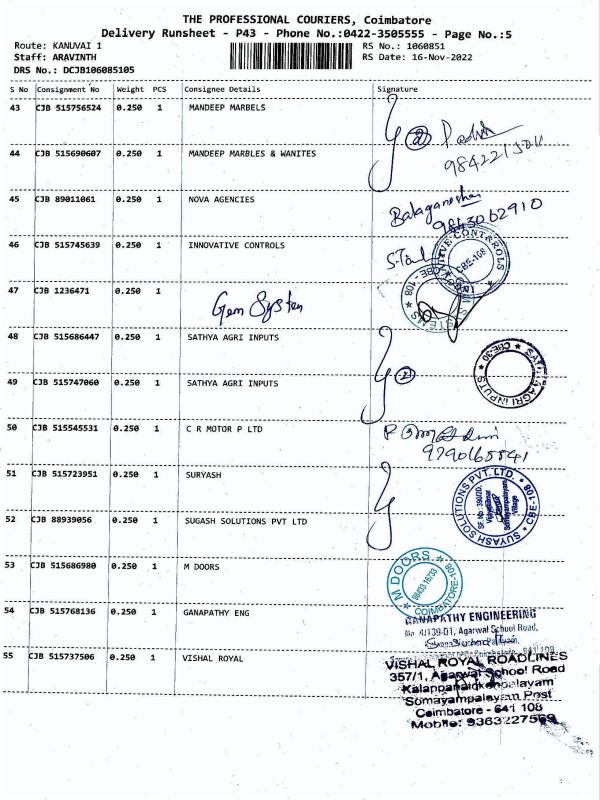 THE PROFESSIONAL COURIERS, Coimbatore
Delivery Runsheet - P43 - Phone No.:0422-3505555 - Page No.:5
Route: KANUVAI 1 RS No.: 1060851
Staff: ARAVINTH RS Date: 16-Nov-2022
DRS No.: DCJB106085105
S No Consignment No Weight PCS Consignee Details Signature
43 CJB 515756524 0.250 1 MANDEEP MARBELS
2
44 CJB 515690607 0.250 1 MANDEEP MARBLES & WANITES
45 CJB 89011061 0.250 1 NOVA AGENCIES
Balaganeshan
9843062910
46 CJB 515745639 0.250 1 INNOVATIVE CONTROLS
CBE-108
47 CJB 1236471 0.250 1 Gem System
CBE - 108
48 CJB 515686447 0.250 1 SATHYA AGRI INPUTS
CBE-30
AGRI INPUTS
49 CJB 515747060 0.250 1 SATHYA AGRI INPUTS
2
50 CJB 515545531 0.250 1 C R MOTOR P LTD
51 CJB 515723951 0.250 1 SURYASH
SUYASH SOLUTIONS PVT. LTD. CBE-108
Village
52 CJB 88939056 0.250 1 SUGASH SOLUTIONS PVT LTD
53 CJB 515686980 0.250 1 M DOORS
M DOORS
COIMBATORE-108
54 CJB 515768136 0.250 1 GANAPATHY ENG
GANAPATHY ENGINEERING
Agarwal School Road,
55 CJB 515737506 0.250 1 VISHAL ROYAL
VISHAL ROYAL ROADLINES
357/1, Agarwal School Road
Somayampalayam Post
Coimbatore - 641 108
Mobile: 9363227569